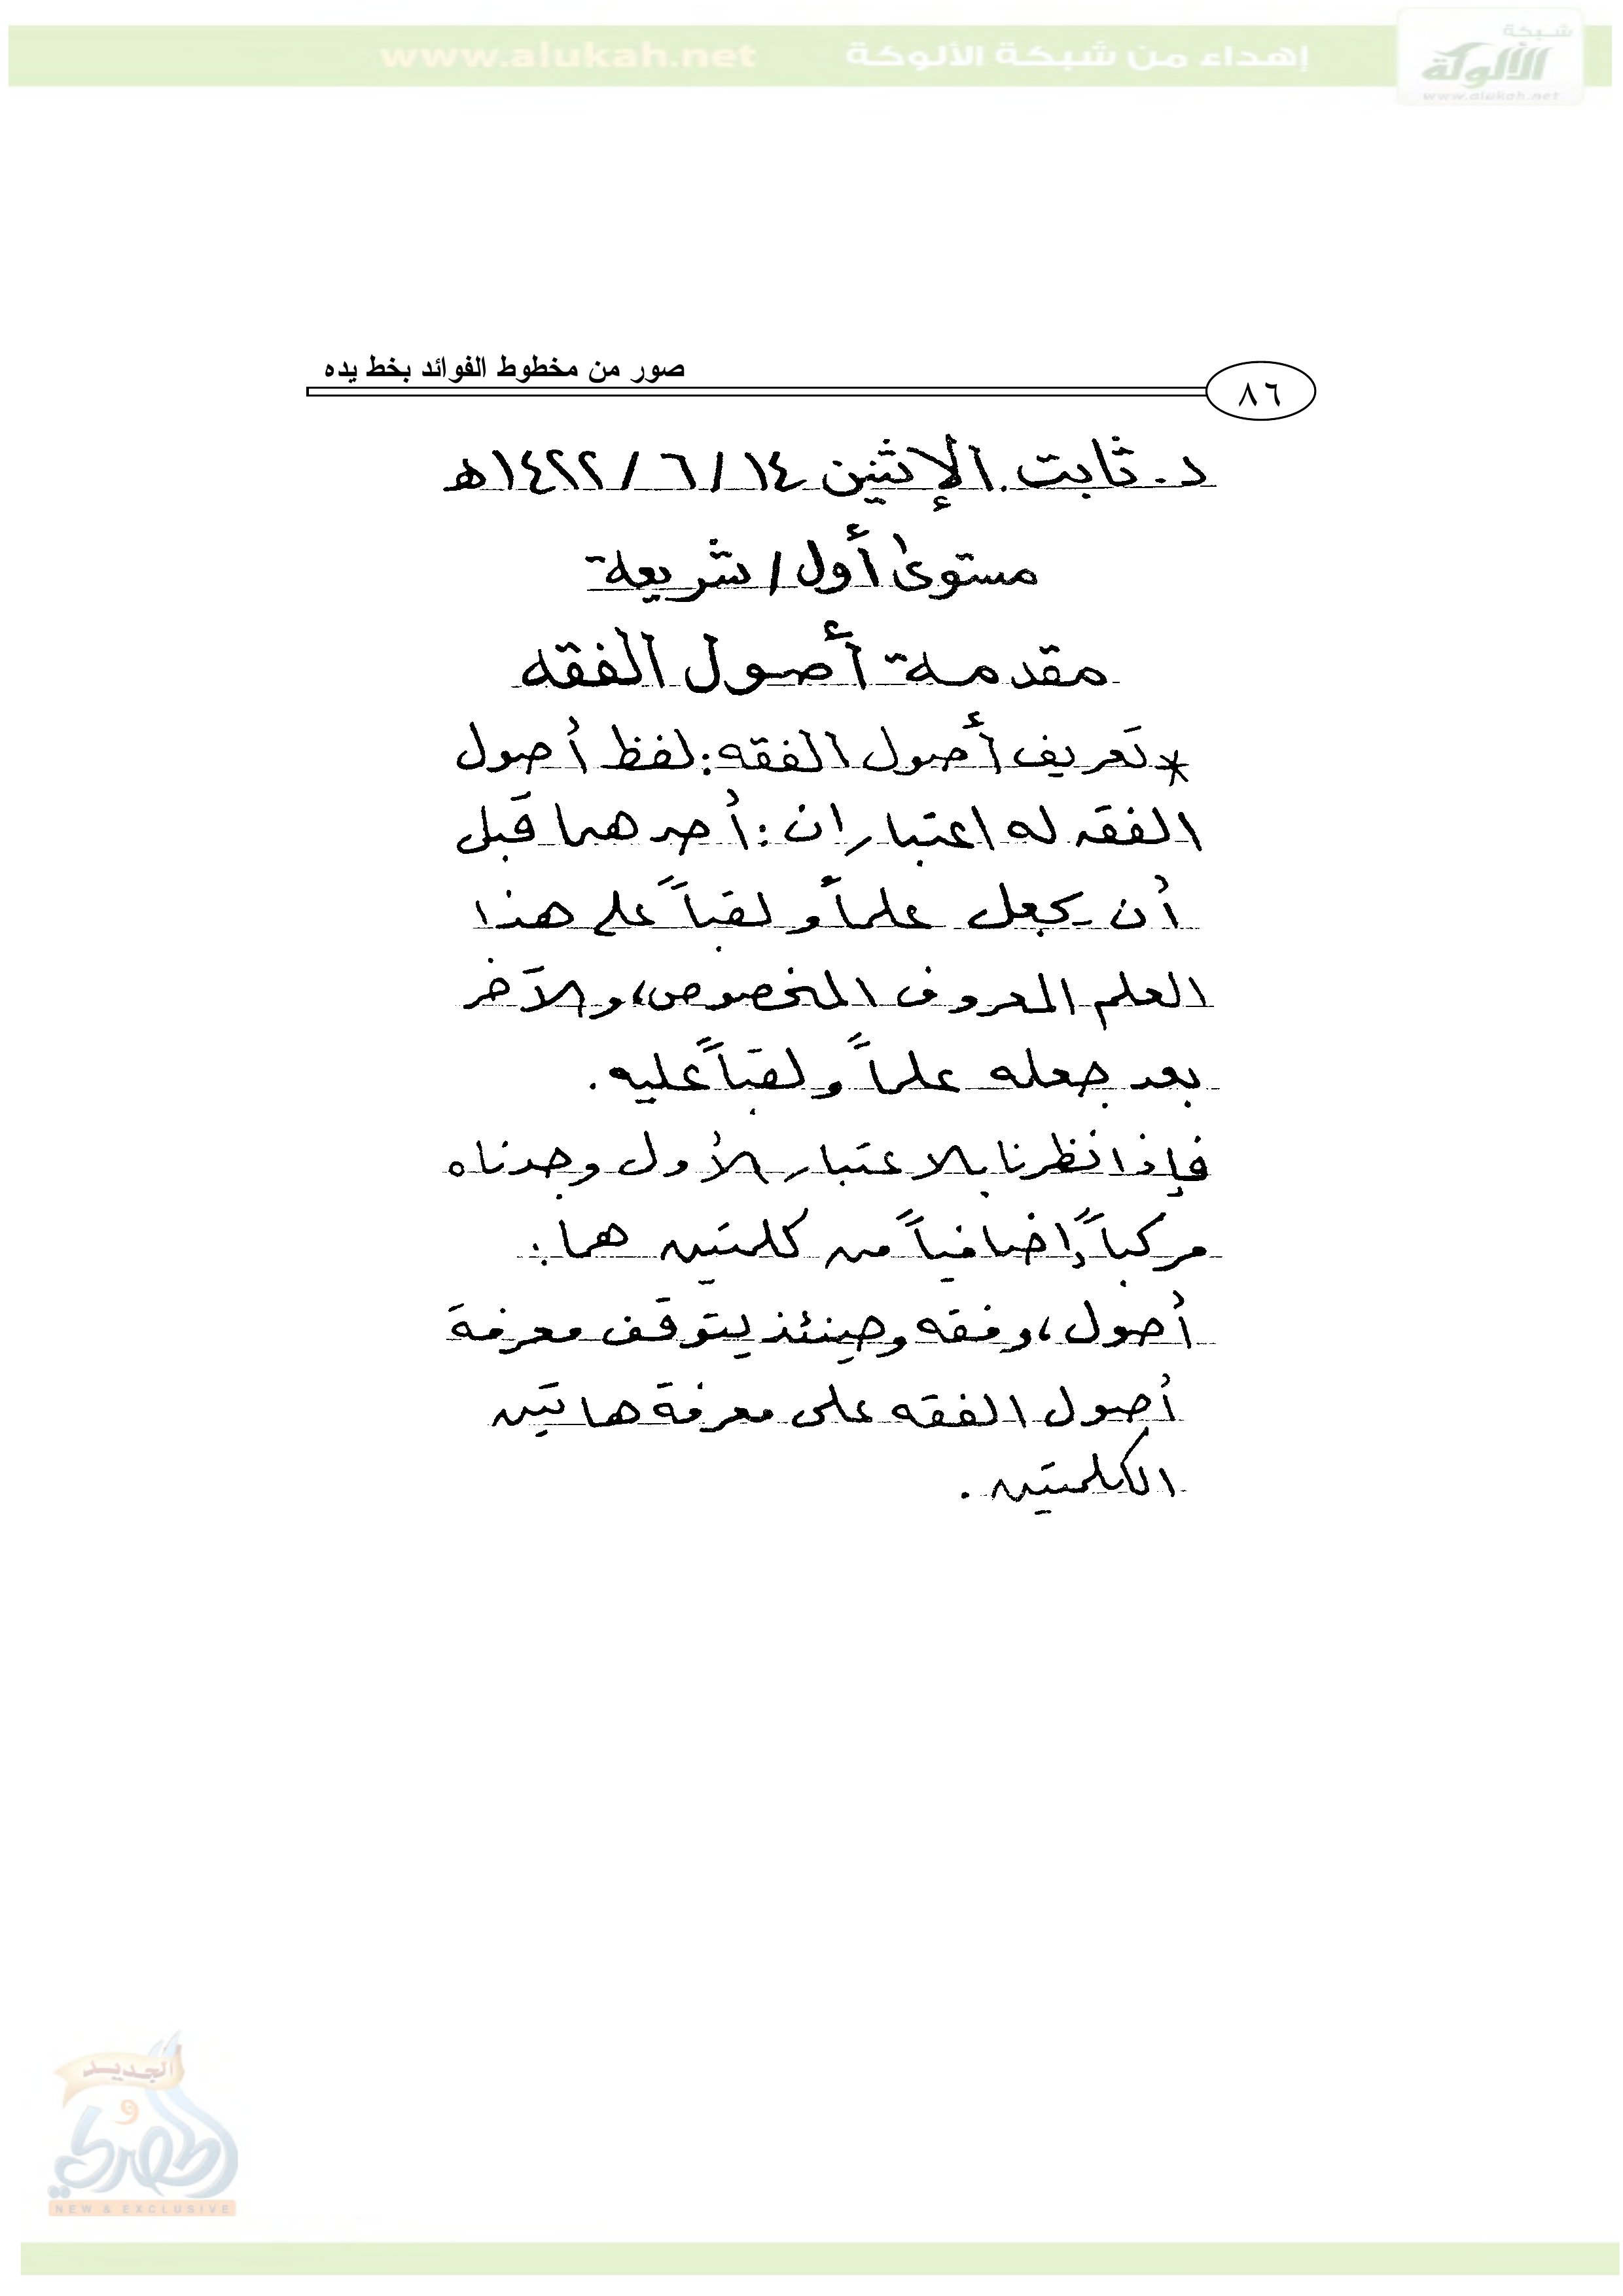 www.alukah.net إهداء من شبكة الألوكة
شبكة
الألوكة
www.alukah.net
صور من مخطوط الفوائد بخط يده
٨٦
د. ثابت. الإثنين ١٤ / ٦ / ١٤٢٢هـ
مستوى أول / شريعة
مقدمة أصول الفقه
* تعريف أصول الفقه: لفظ أصول
الفقه له اعتباران: أحدهما قبل
أن يجعل علماً ولقباً على هذا
العلم المعروف المخصوص، والآخر
بعد جعله علماً ولقباً عليه.
فإذا نظرنا بالاعتبار الأول وجدناه
مركباً إضافياً من كلمتين هما:
أصول، وفقه وحينئذ يتوقف معرفة
أصول الفقه على معرفة هاتين
الكلمتين.
الجديد
و
الحصري
NEW & EXCLUSIVE